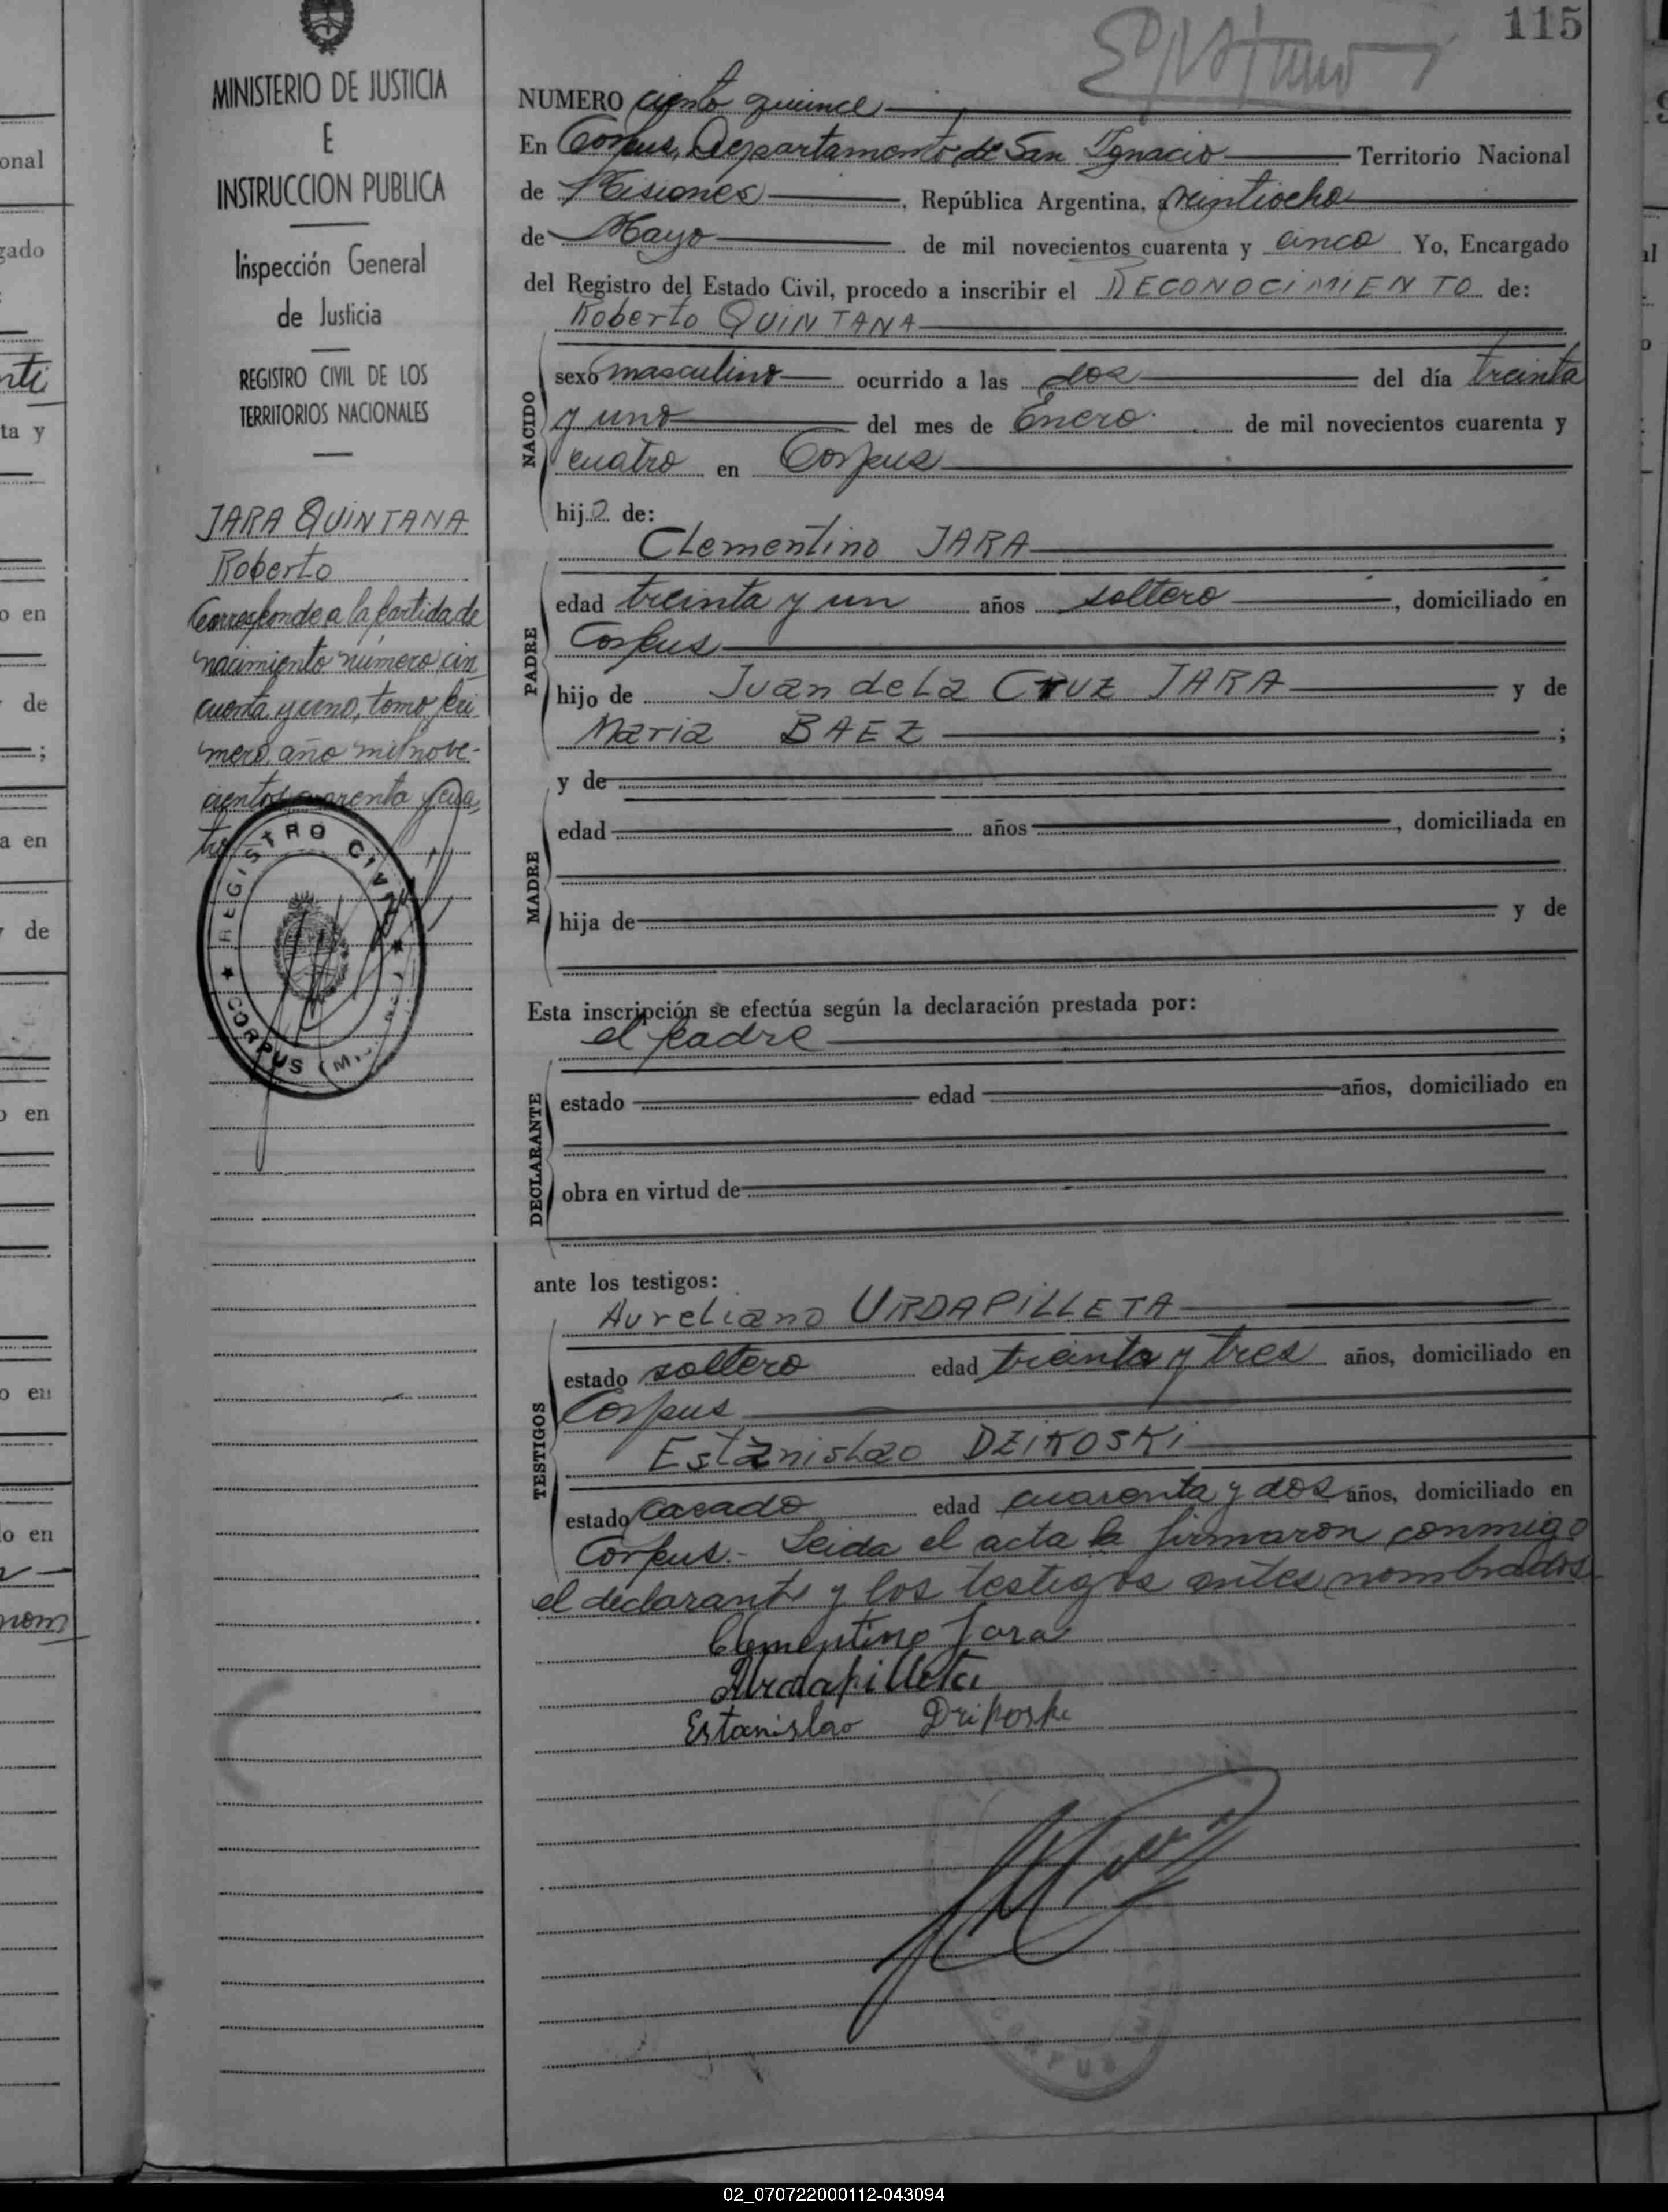 115
MINISTERIO DE JUSTICIA
E
INSTRUCCION PUBLICA
Inspección General
de Justicia
REGISTRO CIVIL DE LOS
TERRITORIOS NACIONALES
JARA QUINTANA
Roberto
Corresponde a la partida de
nacimiento número cin
cuenta y uno, tomo pri
mero, año mil nove-
cientos cuarenta y cua
tro
REGISTRO CIVIL
CORPUS
NUMERO ciento quince
En Corpus, Departamento de San Ignacio Territorio Nacional
de Misiones, República Argentina, a veintiocho
de Mayo de mil novecientos cuarenta y cinco Yo, Encargado
del Registro del Estado Civil, procedo a inscribir el RECONOCIMIENTO de:
Roberto QUINTANA
NACIDO
sexo masculino ocurrido a las dos del día treinta
y uno del mes de Enero de mil novecientos cuarenta y
cuatro en Corpus
hijo de:
Clementino JARA
PADRE
edad treinta y un años soltero, domiciliado en
Corpus
hijo de Juan de La Cruz JARA y de
Maria BAEZ ;
MADRE
y de
edad años, domiciliada en
hija de y de
Esta inscripción se efectúa según la declaración prestada por:
el padre
DECLARANTE
estado edad años, domiciliado en
obra en virtud de
ante los testigos:
Aureliano URDAPILLETA
TESTIGOS
estado soltero edad treinta y tres años, domiciliado en
Corpus
Estanislao DZIKOSKI
estado casado edad cuarenta y dos años, domiciliado en
Corpus.- Leida el acta la firmaron conmigo
el declarante y los testigos antes nombrados
Clementino Jara
Urdapilleta
Estanislao Dzikoski
CORPUS
onal
gado
nti
ta y
o en
de
;
a en
de
o en
o en
o en
nom
02_070722000112-043094